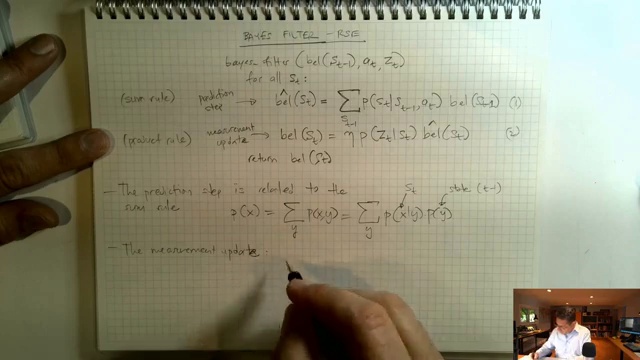 BAYES FILTER - RSE
bayes filter (bel(St-1), at, Zt)
for all St:
(sum rule) prediction step → bel^(St) = ∑St-1 p(St|St-1, at) bel(St-1) (1)
(product rule) measurement update → bel(St) = η p(Zt|St) bel^(St) (2)
return bel(St)
- The prediction step is related to the
sum rule
St state (t-1)
p(x) = ∑y p(x,y) = ∑y p(x|y) p(y)
- The measurement update: